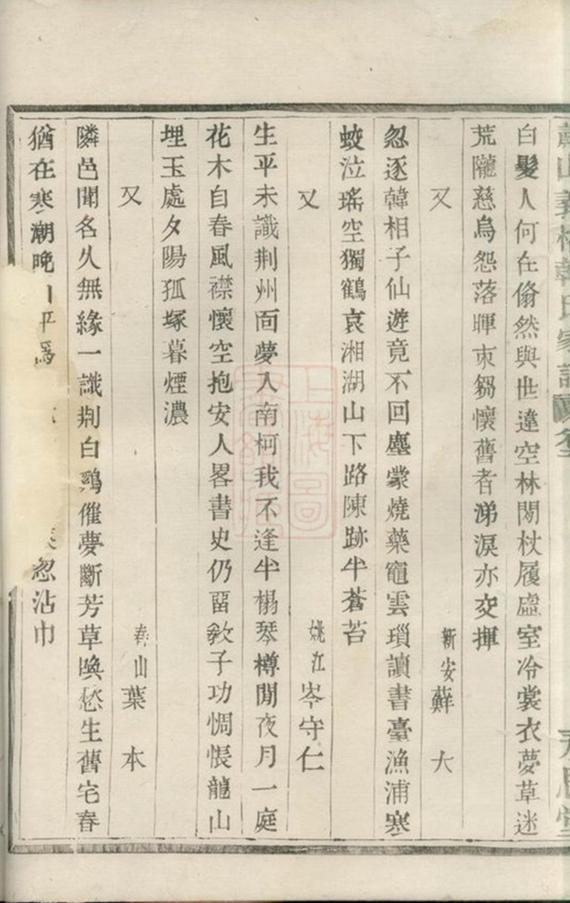 蕭山義橋韓氏家譜
白髮人何在翛然與世違空林閒杖履虛室冷裳衣夢草迷
荒隴慈烏怨落暉束芻懷舊者涕淚亦交揮
又 新安蘇大
忽逐韓相子仙遊竟不回塵蒙燒藥竈雲瑣讀書臺漁浦寒
蛟泣瑤空獨鶴哀湘湖山下路陳跡半蒼苔
又 姚江岑守仁
生平未識荆州面夢入南柯我不逢半榻琴樽閒夜月一庭
花木自春風襟懷空抱安人畧書史仍畱敎子功惆悵龍山
埋玉處夕陽孤塚暮煙濃
又 春山葉本
隣邑聞名久無緣一識荆白鷄催夢斷芳草喚愁生舊宅春
猶在寒潮晚 忽沾巾
上海圖